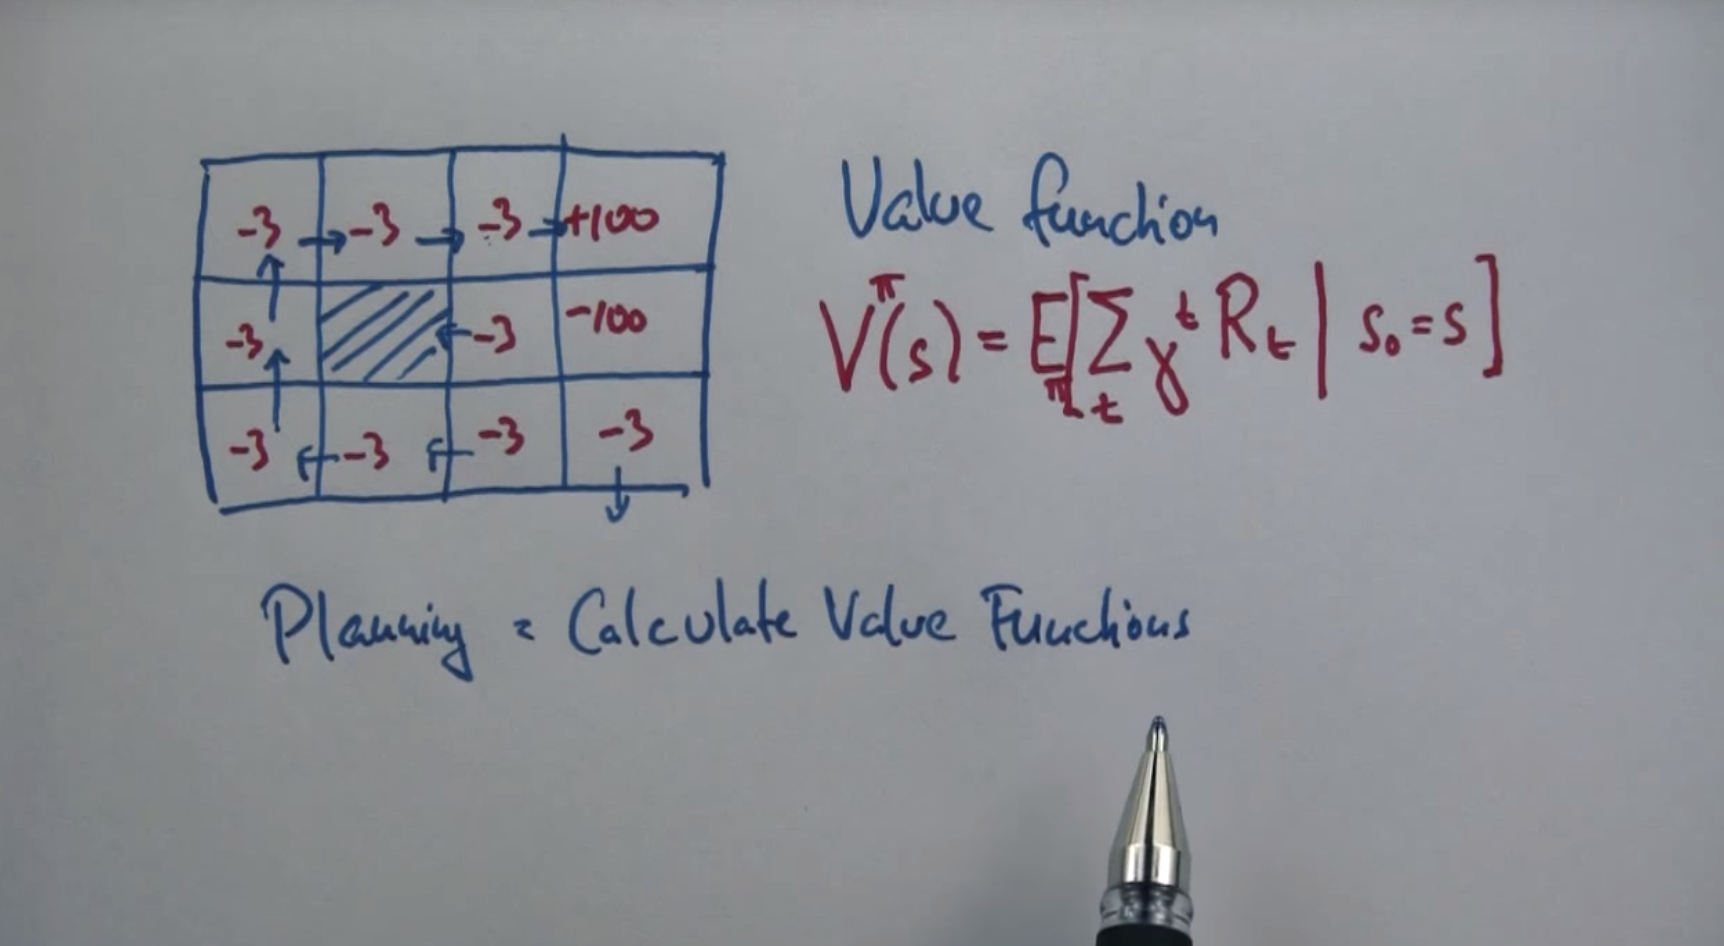 -3 -3 -3 +100
-3 -3 -100
-3 -3 -3 -3
Value function
V^π(s) = E_π[Σ_t γ^t R_t | s₀ = s]
Planning = Calculate Value Functions